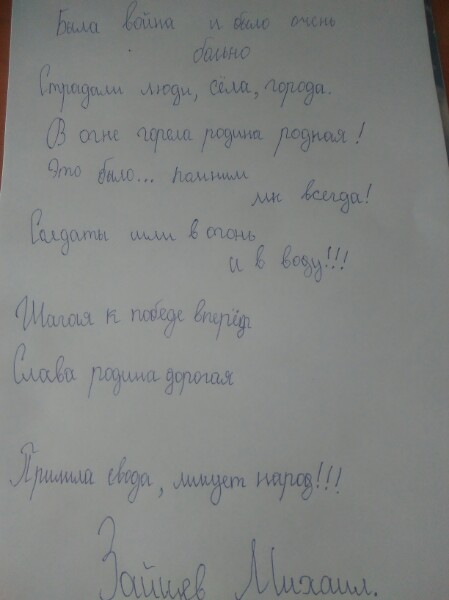 Была война и было очень
больно
Страдали люди, сёла, города.
В огне горела родина родная!
Это было... помним
мы всегда!
Солдаты шли в огонь
и в воду!!!
Шагая к победе вперёд
Слава родина дорогая
Пришла свода, ликует народ!!!
Зайцев Михаил.